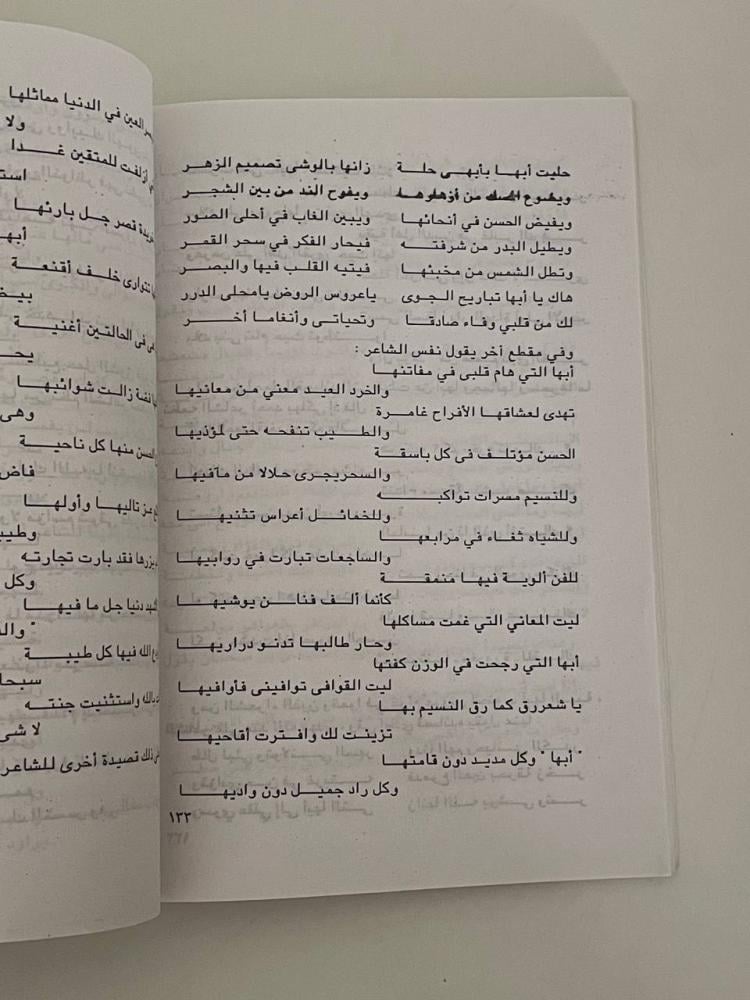 حليت أبهـا بأبهـى حلـة زانها بالوشى تصميم الزهر
ويضوع المسك من أزهارهـا ويفوح الند من بين الشجـر
ويفيض الحسن في أنحائهـا ويبين الغاب في أحلى الصور
ويطيل البدر من شرفتـــه فيحار الفكر في سحر القمر
وتطل الشمس من مخبئهـا فيتيه القلب فيها والبصـر
هاك يا أبها تباريح الجـوى ياعروس الروض يامحلى الدرر
لك من قلبي وفاء صادقـا وتحياتى وأنغاما أخــر
وفي مقطع أخر يقول نفس الشاعر :
أبها التي هام قلبى في مفاتنهـا
والخرد العيـد معني من معانيهــا
تهدى لعشاقهـا الأفراح غامـرة
والطــيب تنفحـه حتى لمؤذيهـا
الحسن مؤتلـف فى كل باسقـة
والسحريجرى حلالا من مآقيهـا
وللنسيم مسرات تواكبـــه
وللخمائــل أعراس تثنيهــا
وللشياه ثغـاء في مرابعهــا
والساجعات تبارت في روابيهـا
للفن ألويـة فيهـا منمقــة
كأنما ألـف فنـان يوشيهــا
ليت المعاني التي غمت مسالكها
وحـار طالبهـا تدنـو دراريهـا
أبها التي رجحت في الوزن كفتها
ليت القوافى توافينى فأوافيهـا
يا شعررق كما رق النسيم بهـا
تزينـت لك وافتـرت أقاحيهـا
" أبها " وكل مديـد دون قامتهـا
وكل راد جميـل دون واديهــا
١٣٣
العين في الدنيا مماثلهـا
ولا
أزلفت للمتقين غــدا
است
قصر جـل بارئهـا
أبهـ
تتوارى خلـف أقنعـة
بيـض
فى الحالتـين أغنيـة
يحـ
زالت شوائبهـا
وهى
منها كل ناحيـة
فاض
تاليهـا وأولهـا
وطيب
فقد بارت تجارتـه
وكل
دنيا جل ما فيهـا
" وال
الله فيها كل طيبـة
سبحا
واستثنيت جنتـه
لا شى
ذلك قصيدة أخرى للشاعر